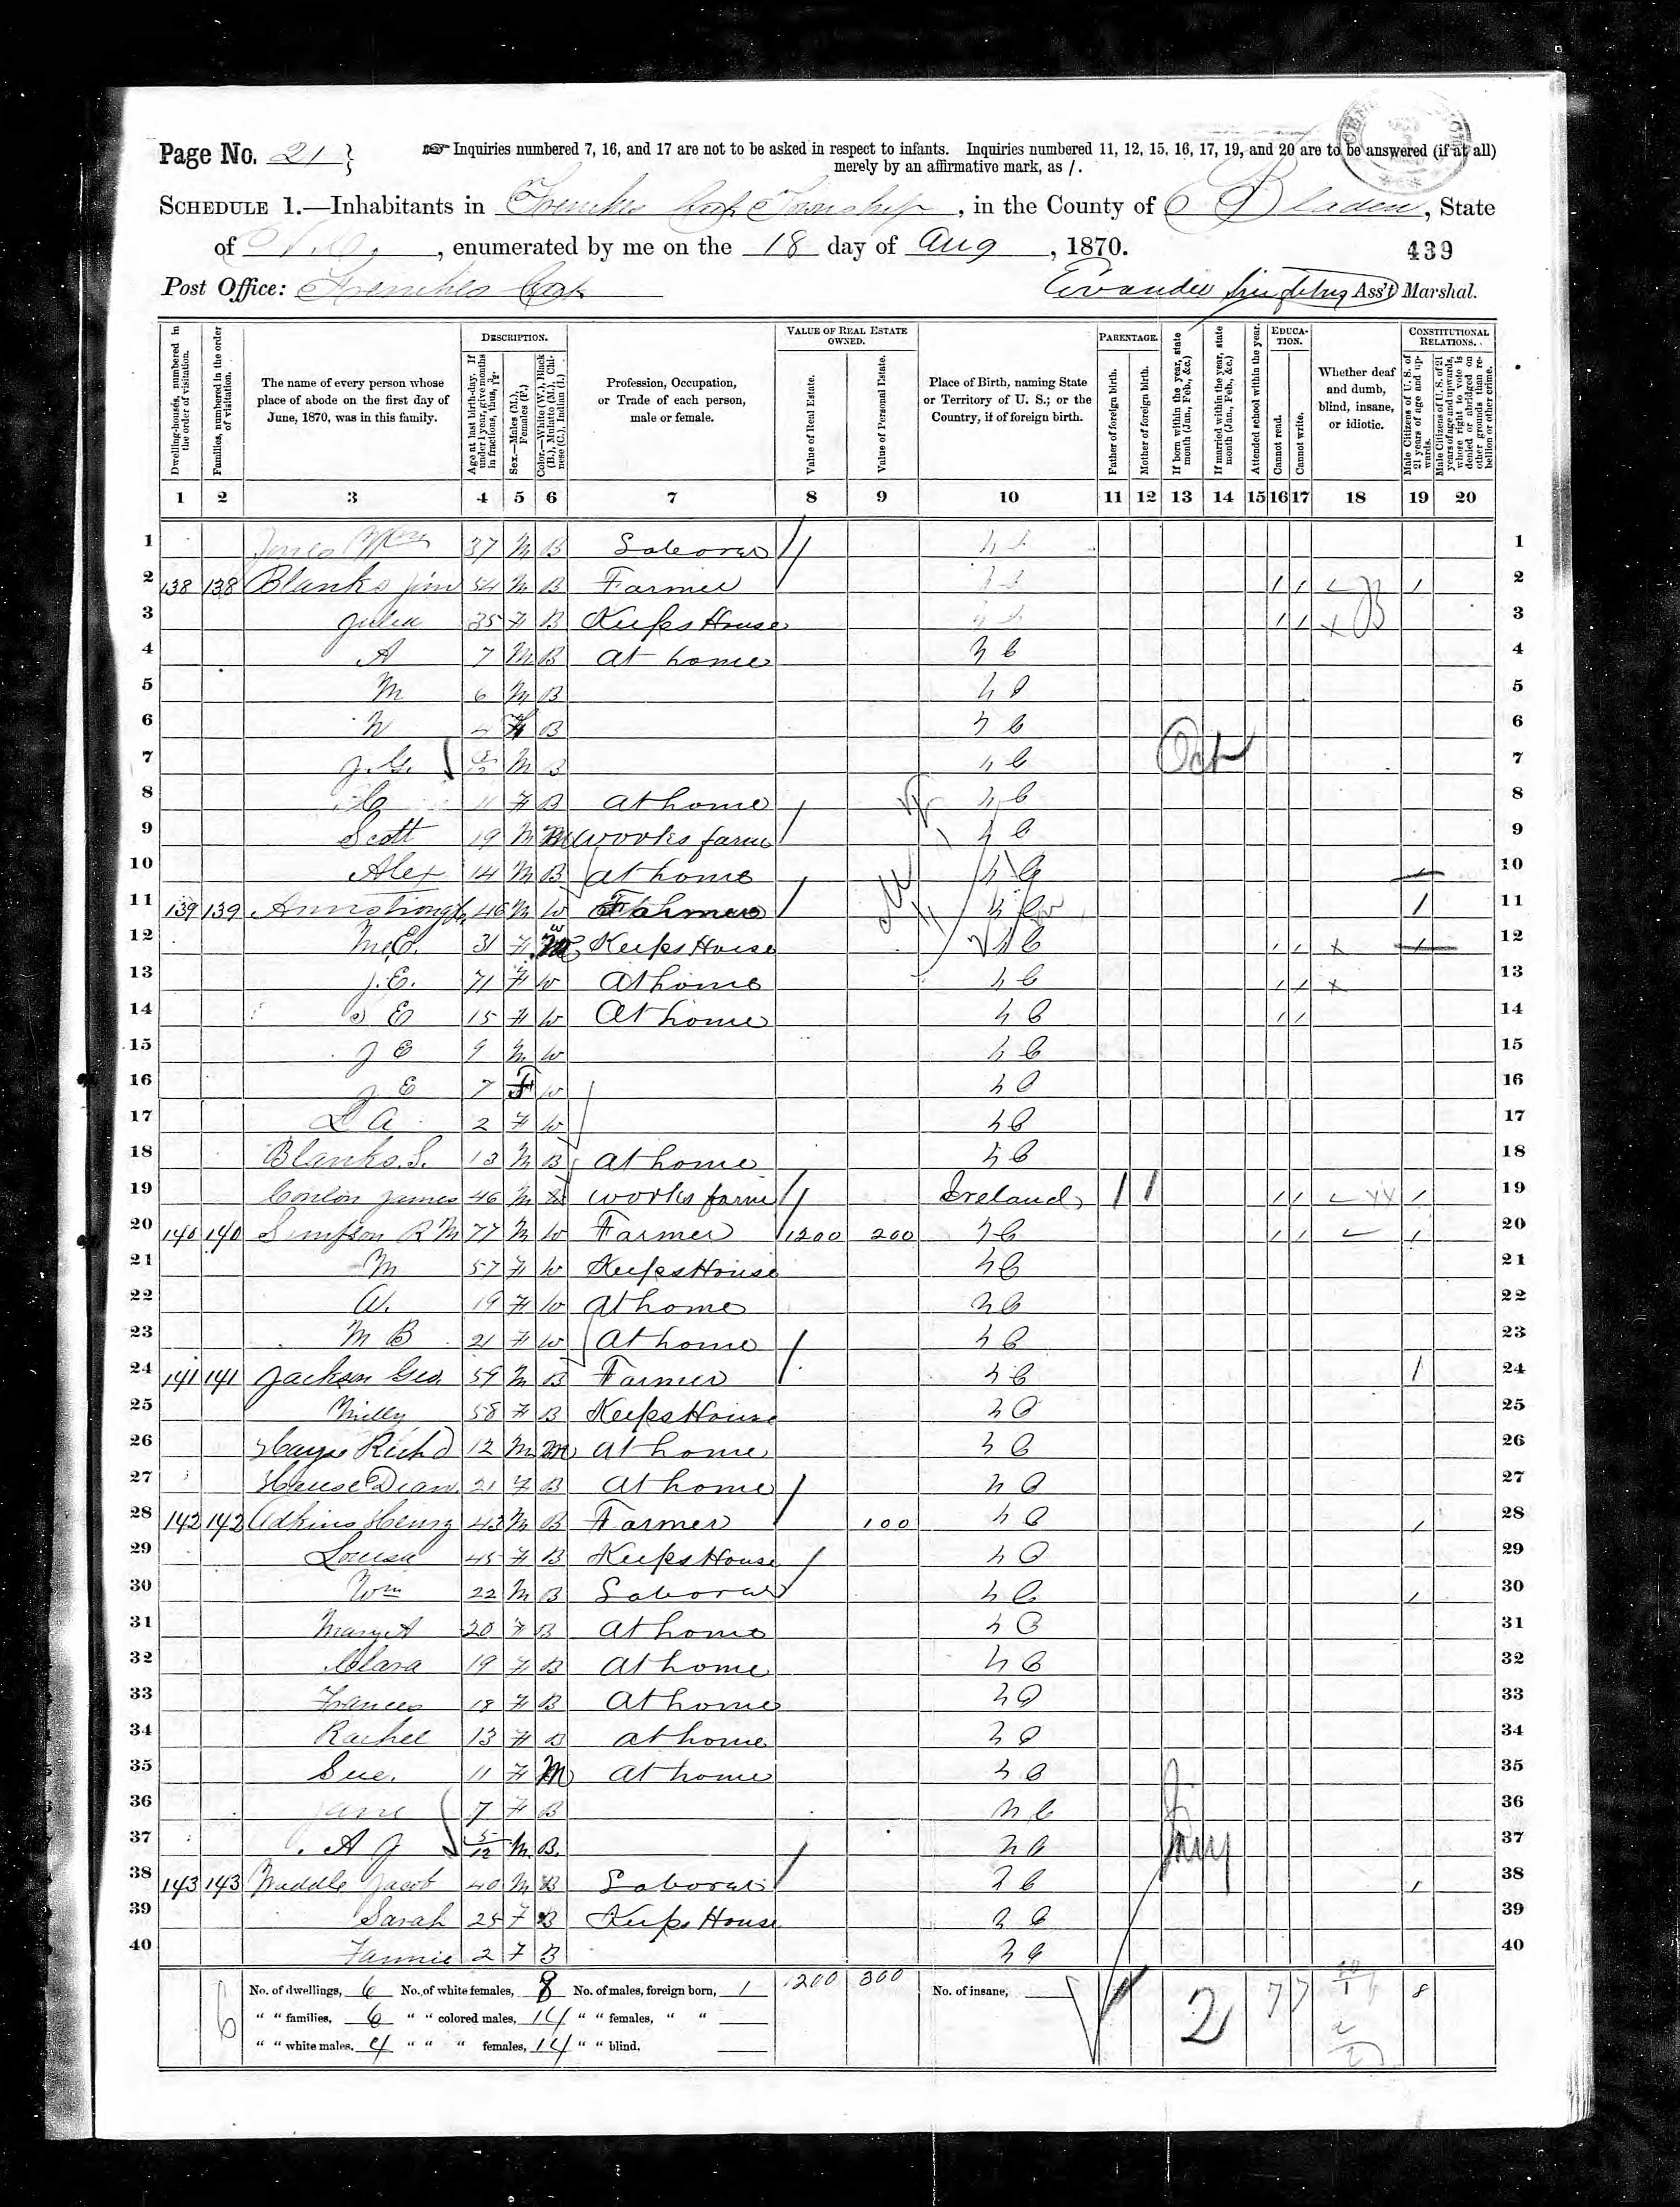 Page No. 21 } Inquiries numbered 7, 16, and 17 are not to be asked in respect to infants. Inquiries numbered 11, 12, 15, 16, 17, 19, and 20 are to be answered (if at all)
merely by an affirmative mark, as /.
SCHEDULE 1.—Inhabitants in Township, in the County of Bladen, State
of N.C., enumerated by me on the 18 day of Aug, 1870. 439
Post Office: Ass't Marshal.
Dwelling-houses, numbered in the order of visitation.
Families, numbered in the order of visitation.
The name of every person whose place of abode on the first day of June, 1870, was in this family.
DESCRIPTION.
Age at last birth-day. If under 1 year, give months in fractions, thus, 3/12
Sex.—Males (M.), Females (F.)
Color.—White (W.), Black (B.), Mulatto (M.), Chinese (C.), Indian (I.)
Profession, Occupation, or Trade of each person, male or female.
VALUE OF REAL ESTATE OWNED.
Value of Real Estate.
Value of Personal Estate.
Place of Birth, naming State or Territory of U. S.; or the Country, if of foreign birth.
PARENTAGE.
Father of foreign birth.
Mother of foreign birth.
If born within the year, state month (Jan., Feb., &c.)
If married within the year, state month (Jan., Feb., &c.)
Attended school within the year.
EDUCATION.
Cannot read.
Cannot write.
Whether deaf and dumb, blind, insane, or idiotic.
CONSTITUTIONAL RELATIONS.
Male Citizens of U. S. of 21 years of age and upwards.
Male Citizens of U. S. of 21 years of age and upwards, whose right to vote is denied or abridged on other grounds than rebellion or other crime.
1 2 3 4 5 6 7 8 9 10 11 12 13 14 15 16 17 18 19 20
1 Jones 37 M B Laborer 1
2 138 138 Blanks Jim 54 M B Farmer / / / 2
3 Julia 35 F B Keeps House / / 3
4 A 7 M B at home N C 4
5 M 6 M B N C 5
6 N 4 B N C 6
7 J. G. M B N C Oct 7
8 C 11 F B at home N C 8
9 Scott 19 M M works farm N C 9
10 Alex 14 M B at home N C 10
11 139 139 Armstrong 46 M W Farmer N C / 11
12 M. E. 31 F W Keeps House N C / / x 12
13 J. E. 71 F W At home N C / / x 13
14 E 15 F W At home N C / / 14
15 J E 9 M W N C 15
16 J E 7 F W N C 16
17 L A 2 F W N C 17
18 Blanks. S. 13 M B at home N C 18
19 Conlon James 46 M works farm Ireland / / / / / 19
20 140 140 Simpson R M 77 M W Farmer 1200 200 N C / / / 20
21 M 57 F W Keeps House N C 21
22 A. 19 F W At home N C 22
23 M B 21 F W At home N C 23
24 141 141 Jackson Geo. 59 M B Farmer N C / 24
25 Milly 58 F B Keeps House N C 25
26 Richd 12 M M at home N C 26
27 21 F B at home N C 27
28 142 142 Adkins Henry 43 M B Farmer 100 N C / 28
29 Louisa 45 F B Keeps House N C 29
30 Wm 22 M B Laborer N C / 30
31 Mary A 20 F B At home N C 31
32 Clara 19 F B At home N C 32
33 Frances 18 F B At home N C 33
34 Rachel 13 F B at home N C 34
35 Sue. 11 F M at home N C 35
36 Jane 7 F B N C 36
37 A J 5/12 M. B. N C 37
38 143 143 Waddle Jacob 40 M B Laborer N C / 38
39 Sarah 25 F B Keeps House N C 39
40 Fannie 2 F B N C 40
No. of dwellings, 6 No. of white females, 8 No. of males, foreign born, 1 1200 300 No. of insane, 2 7 7 8
" " families, 6 " " colored males, 14 " " females, " "
" " white males, 4 " " " females, 14 " " blind,